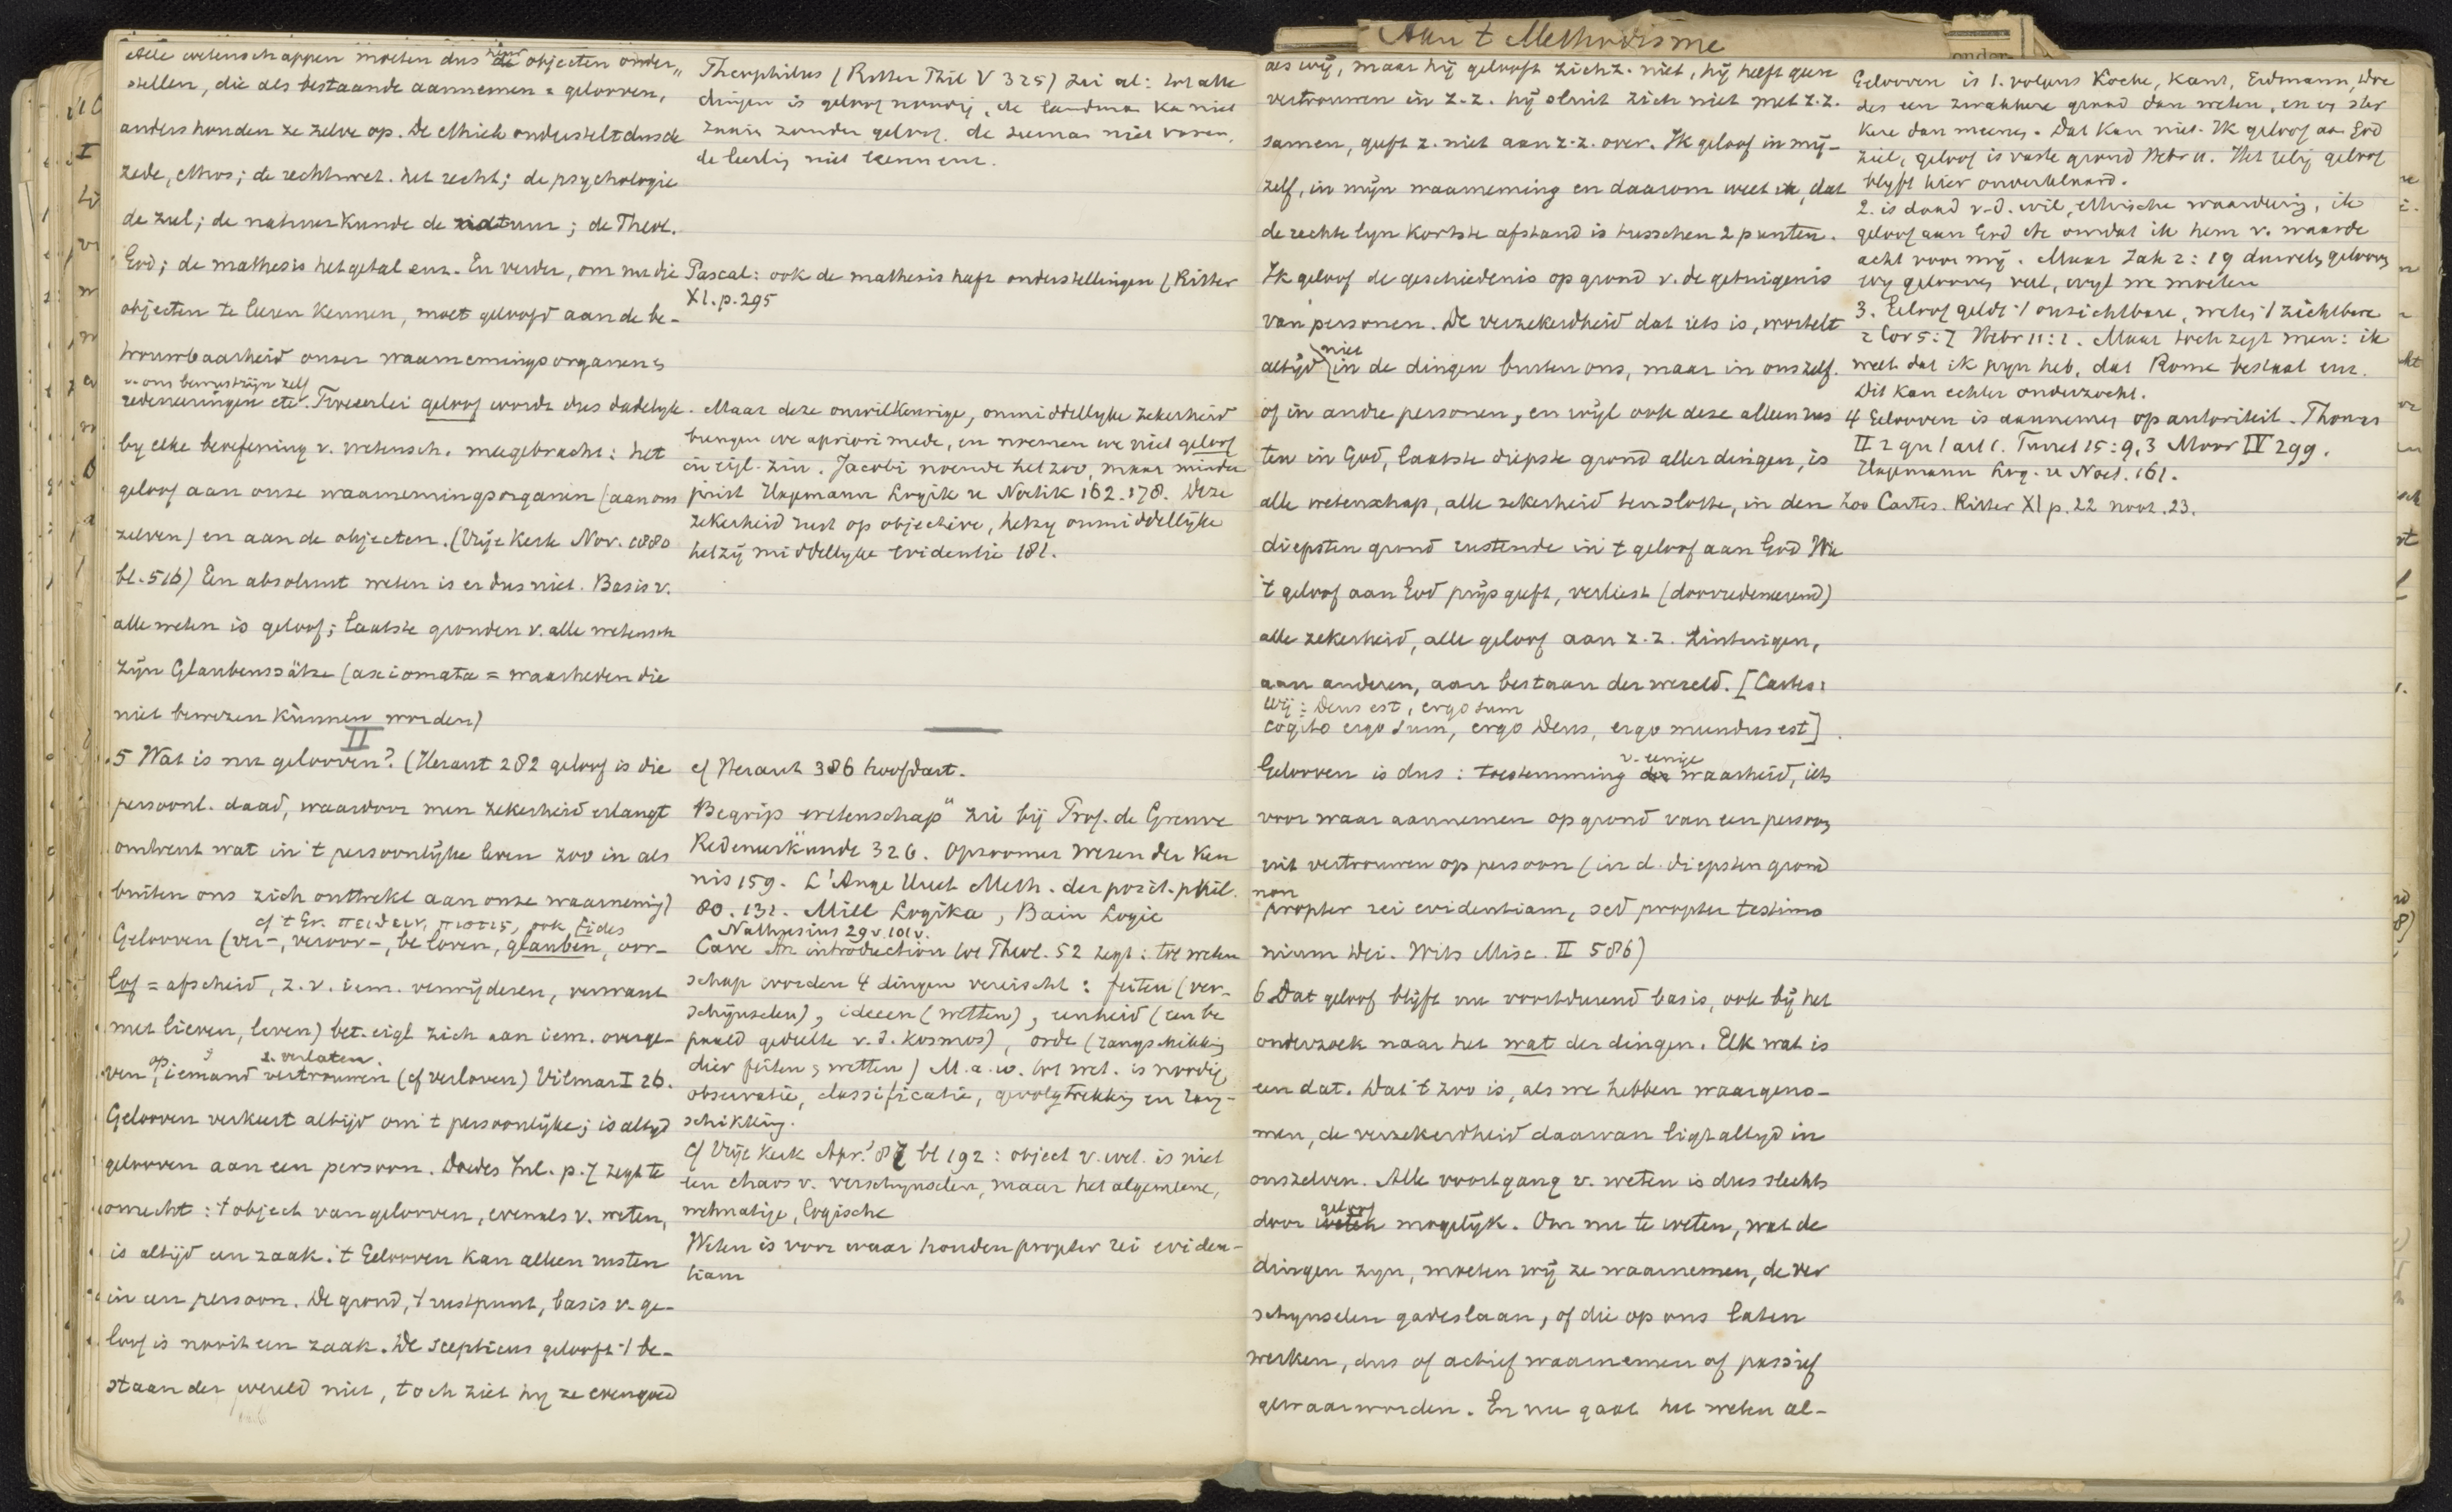 Alle wetenschappen moeten dus hunne de objecten onder-
stellen, die als bestaande aannemen = gelooven,
anders houden ze zelve op. De ethiek onderstelt dus de
zede, ethos; de rechtswet. het recht; de psychologie
de ziel; de natuurkunde de natuur; de Theol.
God; de mathesis het getal enz. En verder, om nu die
objecten te leeren kennen, moet geloofd aan de be-
trouwbaarheid onzer waarnemingsorganen en
v. ons bewustzijn zelf
redeneeringen etc. Tweeerlei geloof wordt dus dadelyk
by elke beoefening v. wetensch. meegebracht: het
geloof aan onze waarnemingsorganen (aan ons
zelven) en aan de objecten. (Vrije Kerk Nov. 1880
bl. 516) Een absoluut weten is er dus niet. Basis v.
alle weten is geloof; laatste gronden v. alle wetensch
zijn Glaubenssätze (axiomata = waarheden die
niet bewezen kunnen worden)
II
5 Wat is nu gelooven? (Heraut 282 geloof is die
persoonl. daad, waardoor men zekerheid erlangt
omtrent wat in 't persoonlijke leven zoo in als
buiten ons zich onttrekt aan onze waarneming)
cf 't Gr. πειθειν, πιστις, ook fides
Gelooven (ver-, veroor-, beloven, glauben, oor-
lof = afscheid, z. v. iem. verwijderen, verwant
met lieven, leven) bet. eigl zich aan iem. overge-
op 3 2. verlaten.
ven, iemand vertrouwen (cf verloven) Vilmar I 26.
Gelooven verkeert altijd om 't persoonlijke; is altyd
gelooven aan een persoon. Doedes Inl. p. 7 zegt te
onrecht: 't object van gelooven, evenals v. weten,
is altijd een zaak. 't Gelooven kan alleen rusten
in een persoon. De grond, 't rustpunt, basis v. ge-
loof is nooit een zaak. De scepticus gelooft 't be-
staan der wereld niet, toch ziet hy ze evengoed
Theophilus (Ritter Thl V 325) zei al: tot alle
dingen is geloof noodig, de landma ka niet
zaaien zonder geloof. de zeeman niet varen,
de leerling niet leeren enz.
Pascal: ook de mathesis heeft onderstellingen (Ritter
XI. p. 295
Maar deze onwillkeurige, onmiddellyke zekerheid
brengen we apriori mede, en noemen we niet geloof
in eigl. zin. Jacobi noemde het zoo, maar minder
juist Hagemann Logik u Noetik 162. 178. Deze
zekerheid rust op objectieve, hetzy onmiddellijke
hetzij middellyke evidentie 181.
cf Heraut 386 hoofdart.
Begrip wetenschap" zie bij Prof. de Greuve
Redeneerkunde 326. Opzoomer Wezen der Ken
nis 159. L'Ange Huet Meth. der posit. phil.
80. 131. Mill Logika, Bain Logic
Nathusius 29 v. 101 v.
Cave An introduction to Theol. 52 zegt: tot weten
schap worden 4 dingen vereischt: feiten (ver-
schijnselen), ideeen (wetten), eenheid (een be
paald gedeelte v. d. kosmos), orde (rangschikking
dier feiten en wetten) M. a. w. tot wet. is noodig,
observatie, classificatie, gevolgtrekking en rang-
schikking.
cf Vrije Kerk Apr. '87 bl 192: object v. wet. is niet
een chaos v. verschynselen, maar het algemeene,
wetmatige, logische
Weten is voor waar houden propter rei eviden-
tiam
Aan 't Methodisme
onder
als wij, maar hij gelooft zich z. niet, hij heeft geen
vertrouwen in z. z. hij sluit zich niet met z. z.
samen, geeft z. niet aan z. z. over. Ik geloof in mij-
zelf, in mijn waarneming en daarom weet ik, dat
de rechte lyn kortste afstand is tusschen 2 punten.
Ik geloof de geschiedenis op grond v. de getuigenis
van personen. De verzekerdheid dat iets is, wortelt
niet
altijd in de dingen buiten ons, maar in ons zelf.
of in andre personen, en wijl ook deze alleen rus
ten in God, laatste diepste grond aller dingen, is
alle wetenschap, alle zekerheid ten slotte, in den
diepsten grond rustende in 't geloof aan God Wie
't geloof aan God prijs geeft, verliest (doorredeneerend)
alle zekerheid, alle geloof aan z. z. zintuigen,
aan anderen, aan bestaan der wereld. [Cartes:
Wij: Deus est, ergo sum
cogito ergo sum, ergo Deus, ergo mundus est].
v. eenige
Gelooven is dus: toestemming der waarheid, iets
voor waar aannemen op grond van een persoon,
uit vertrouwen op persoon (in d. diepsten grond
non
propter rei evidentiam, sed propter testimo
nium Dei. Wits Misc. II 586)
6 Dat geloof blijft nu voortdurend basis, ook bij het
onderzoek naar het wat der dingen. Elk wat is
een dat. Dat 't zoo is, als we hebben waargeno-
men, de verzekerdheid daarvan ligt altyd in
onszelven. Alle voortgang v. weten is dus slechts
geloof
door weten mogelijk. Om nu te weten, wat de
dingen zyn, moeten wij ze waarnemen, de ver
schynselen gadeslaan, of die op ons laten
werken, dus of actief waarnemen of passief
gewaarworden. En nu gaat het weten al-
Gelooven is 1. volgens Locke, Kant, Erdmann, Doe
des een zwakkere grond dan weten, en een ster
kere dan meenen. Dat kan niet. Ik geloof aan God
ziel, geloof is vaste grond Hebr 11. Het relig geloof
blyft hier onverklaard.
2. is daad v. d. wil, ethische waardeering, ik
geloof aan God etc omdat ik hem v. waarde
acht voor mij. Maar Jak 2: 19 duivelen gelooven
wy gelooven veel, wyl we moeten
3. Geloof geldt 't onzichtbare, weten 't zichtbare
2 Cor 5: 7 Hebr 11: 1. Maar toch zegt men: ik
weet dat ik pyn heb, dat Rome bestaat enz.
Dit kan echter onderzocht.
4 Gelooven is aannemen op autoriteit. Thomas
II 2 qu 1 art 1. Turret 15: 9, 3 Moor IV 299.
Hagemann Log. u Noet. 161.
Zoo Cartes. Ritter XI p. 22 noot. 23.